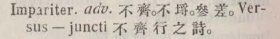 Impariter. adv. 不齊。不埒。參差。Ver-
sus — juncti 不齊行之詩。